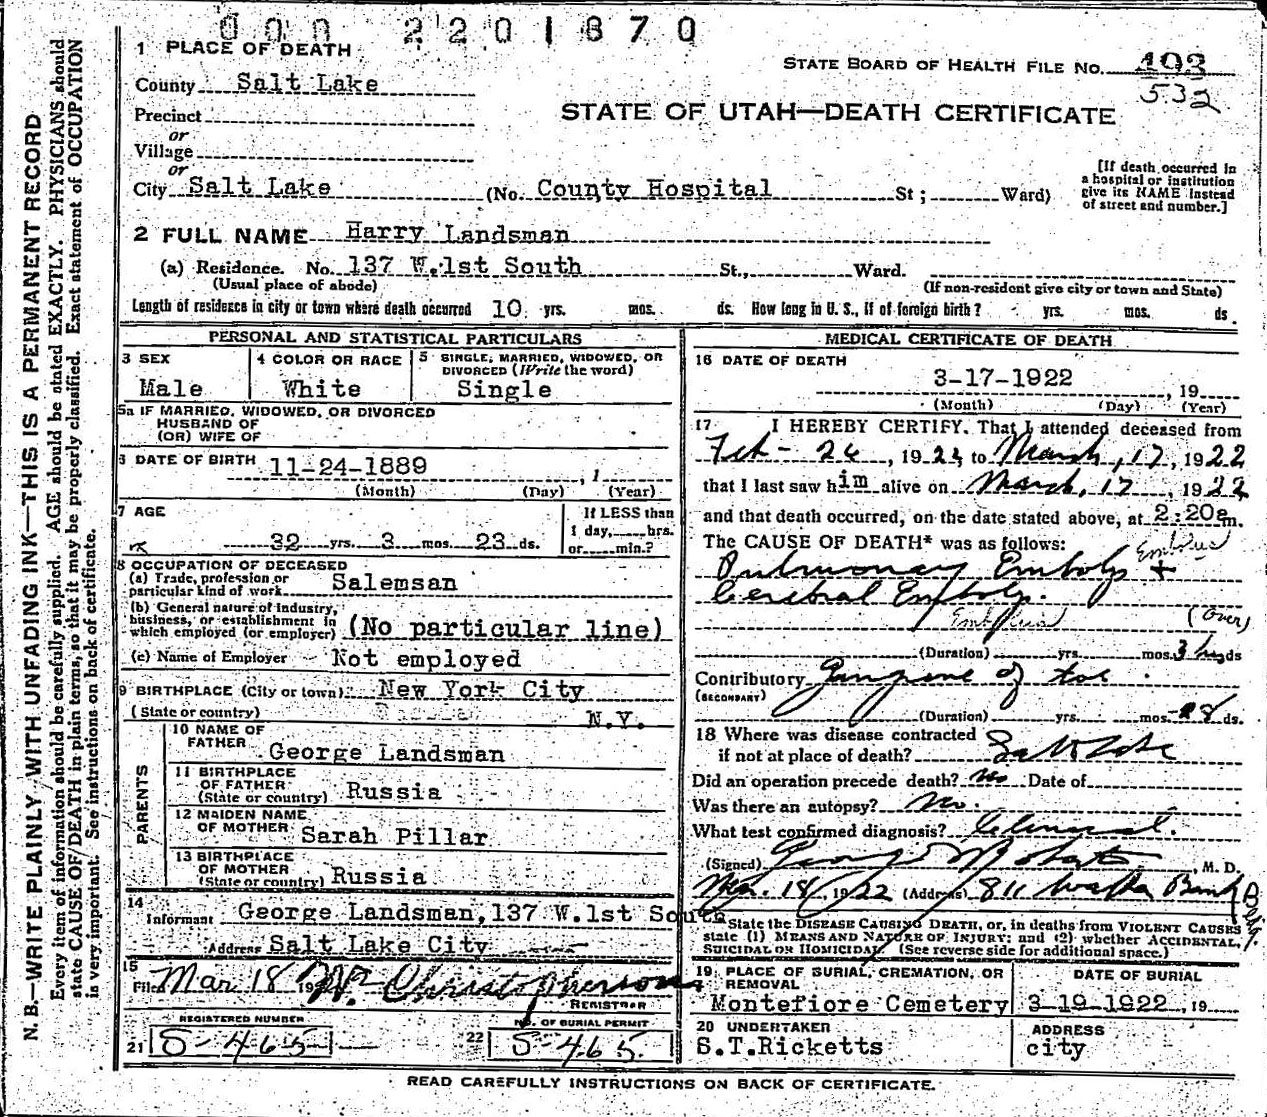 000 2201870
1 PLACE OF DEATH
STATE BOARD OF HEALTH FILE NO. 493
532
County Salt Lake
STATE OF UTAH—DEATH CERTIFICATE
Precinct
or
Village
or
City Salt Lake (No. County Hospital St ; Ward)
[If death occurred in
a hospital or institution
give its NAME instead
of street and number.]
2 FULL NAME Harry Landsman
(a) Residence. No. 137 W.1st South St., Ward.
(Usual place of abode)
(If non-resident give city or town and State)
Length of residence in city or town where death occurred 10 yrs. mos. ds. How long in U. S., if of foreign birth? yrs. mos. ds.
PERSONAL AND STATISTICAL PARTICULARS
3 SEX
Male
4 COLOR OR RACE
White
5 SINGLE, MARRIED, WIDOWED, OR
DIVORCED (Write the word)
Single
5a IF MARRIED, WIDOWED, OR DIVORCED
HUSBAND OF
(OR) WIFE OF
6 DATE OF BIRTH 11-24-1889 , 1
(Month) (Day) (Year)
7 AGE
32 yrs. 3 mos. 23 ds.
If LESS than
1 day, hrs.
or min.?
8 OCCUPATION OF DECEASED
(a) Trade, profession or
particular kind of work Salemsan
(b) General nature of Industry,
business, or establishment in
which employed (or employer) (No particular line)
(c) Name of Employer Not employed
9 BIRTHPLACE (City or town) New York City
(State or country) N.Y.
PARENTS
10 NAME OF
FATHER George Landsman
11 BIRTHPLACE
OF FATHER
(State or country) Russia
12 MAIDEN NAME
OF MOTHER Sarah Pillar
13 BIRTHPLACE
OF MOTHER
(State or country) Russia
14
Informant George Landsman, 137 W.1st South
Address Salt Lake City
15
Filed Mar 18 19 W. Christopherson
REGISTRAR
REGISTERED NUMBER
21 S-465
NO. OF BURIAL PERMIT
22 S-465.
MEDICAL CERTIFICATE OF DEATH
16 DATE OF DEATH
3-17-1922 , 19
(Month) (Day) (Year)
17 I HEREBY CERTIFY, That I attended deceased from
Feb - 26, 1922, to March, 17, 1922
that I last saw him alive on March, 17, 1922
and that death occurred, on the date stated above, at 2:20am.
The CAUSE OF DEATH* was as follows: Embolus
Pulmonary Emboly +
Cerebral Emboly.
Embolus (over)
(Duration) yrs. mos. 3 hrs ds
Contributory Gangrene of toe
(SECONDARY)
(Duration) yrs. mos. 28 ds.
18 Where was disease contracted
if not at place of death? Salt Lake
Did an operation precede death? No Date of
Was there an autopsy? No.
What test confirmed diagnosis? Clinical.
(Signed) George Roberts, M. D.
Mar. 18, 1922 (Address) 811 Walker Bank Bldg.
*State the DISEASE CAUSING DEATH, or, in deaths from VIOLENT CAUSES
state (1) MEANS AND NATURE OF INJURY; and (2) whether ACCIDENTAL,
SUICIDAL OR HOMICIDAL. (See reverse side for additional space.)
19 PLACE OF BURIAL, CREMATION, OR
REMOVAL
Montefiore Cemetery
DATE OF BURIAL
3-19-1922, 19
20 UNDERTAKER
S.T.Ricketts
ADDRESS
city
READ CAREFULLY INSTRUCTIONS ON BACK OF CERTIFICATE.
N. B.—WRITE PLAINLY WITH UNFADING INK—THIS IS A PERMANENT RECORD
Every item of information should be carefully supplied. AGE should be stated EXACTLY. PHYSICIANS should
state CAUSE OF DEATH in plain terms, so that it may be properly classified. Exact statement of OCCUPATION
is very important. See instructions on back of certificate.